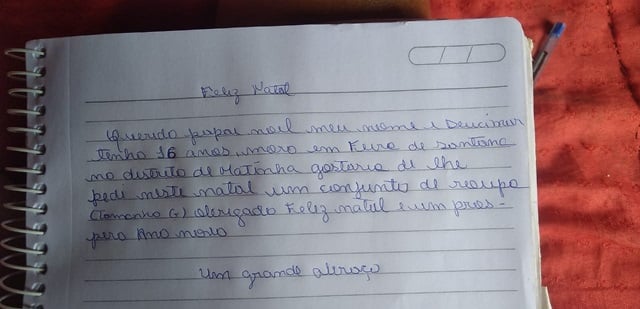 Feliz Natal
Querido papai noel meu nome e Deucimar
tenho 16 anos, moro em Feira de santana
no distrito de Matinha gostaria de lhe
pedi neste natal um conjunto de roupa
(tamanho G) obrigado Feliz natal e um pros-
pero Ano novo
Um grande abraço